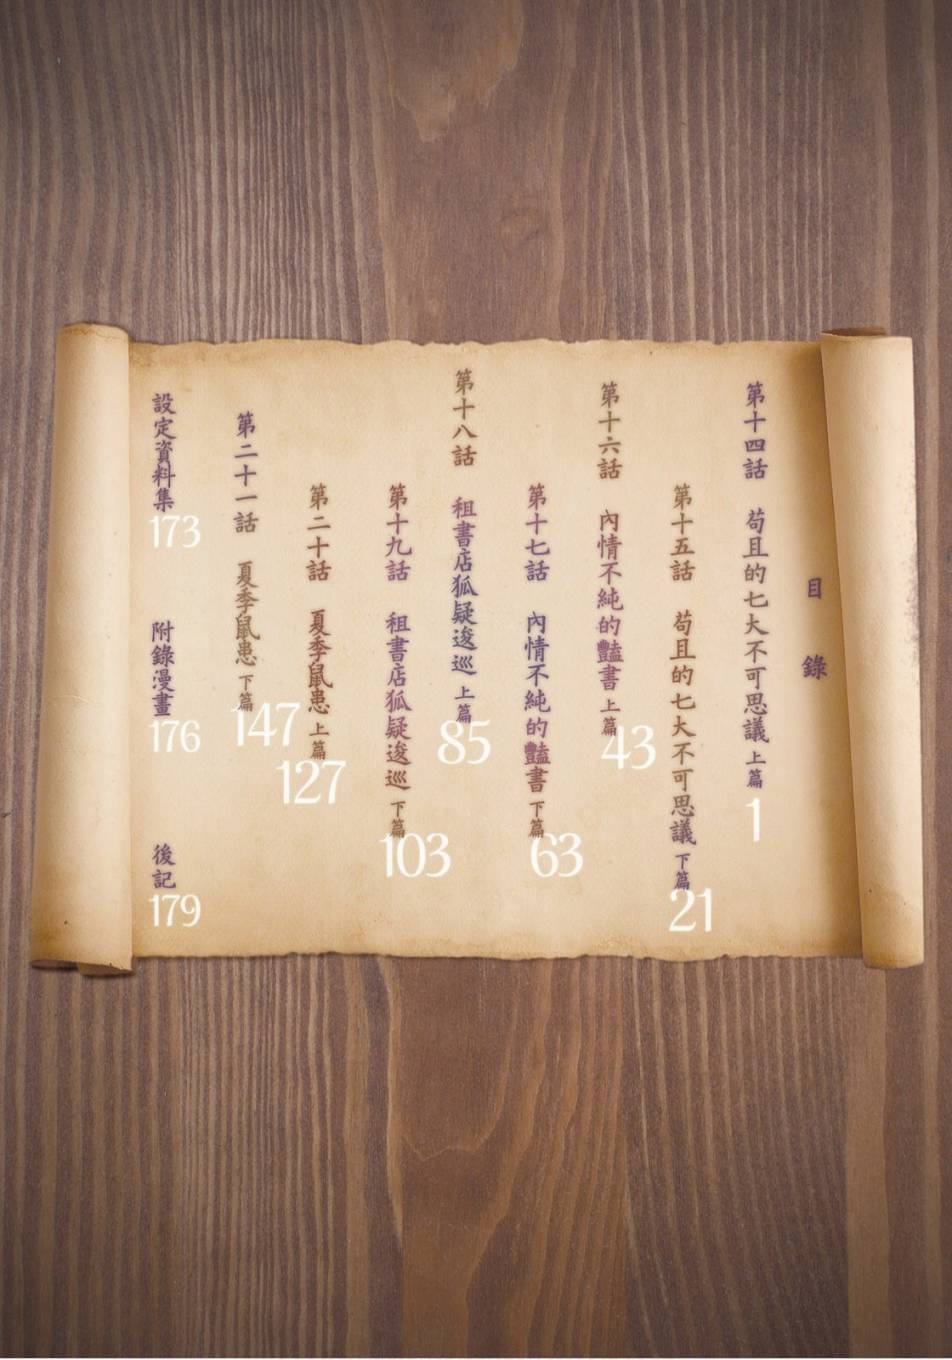 目錄
第十四話 苟且的七大不可思議 上篇 1
第十五話 苟且的七大不可思議 下篇 21
第十六話 內情不純的豔書 上篇 43
第十七話 內情不純的豔書 下篇 63
第十八話 租書店狐疑逡巡 上篇 85
第十九話 租書店狐疑逡巡 下篇 103
第二十話 夏季鼠患 上篇 127
第二十一話 夏季鼠患 下篇 147
設定資料集 173
附錄漫畫 176
後記 179